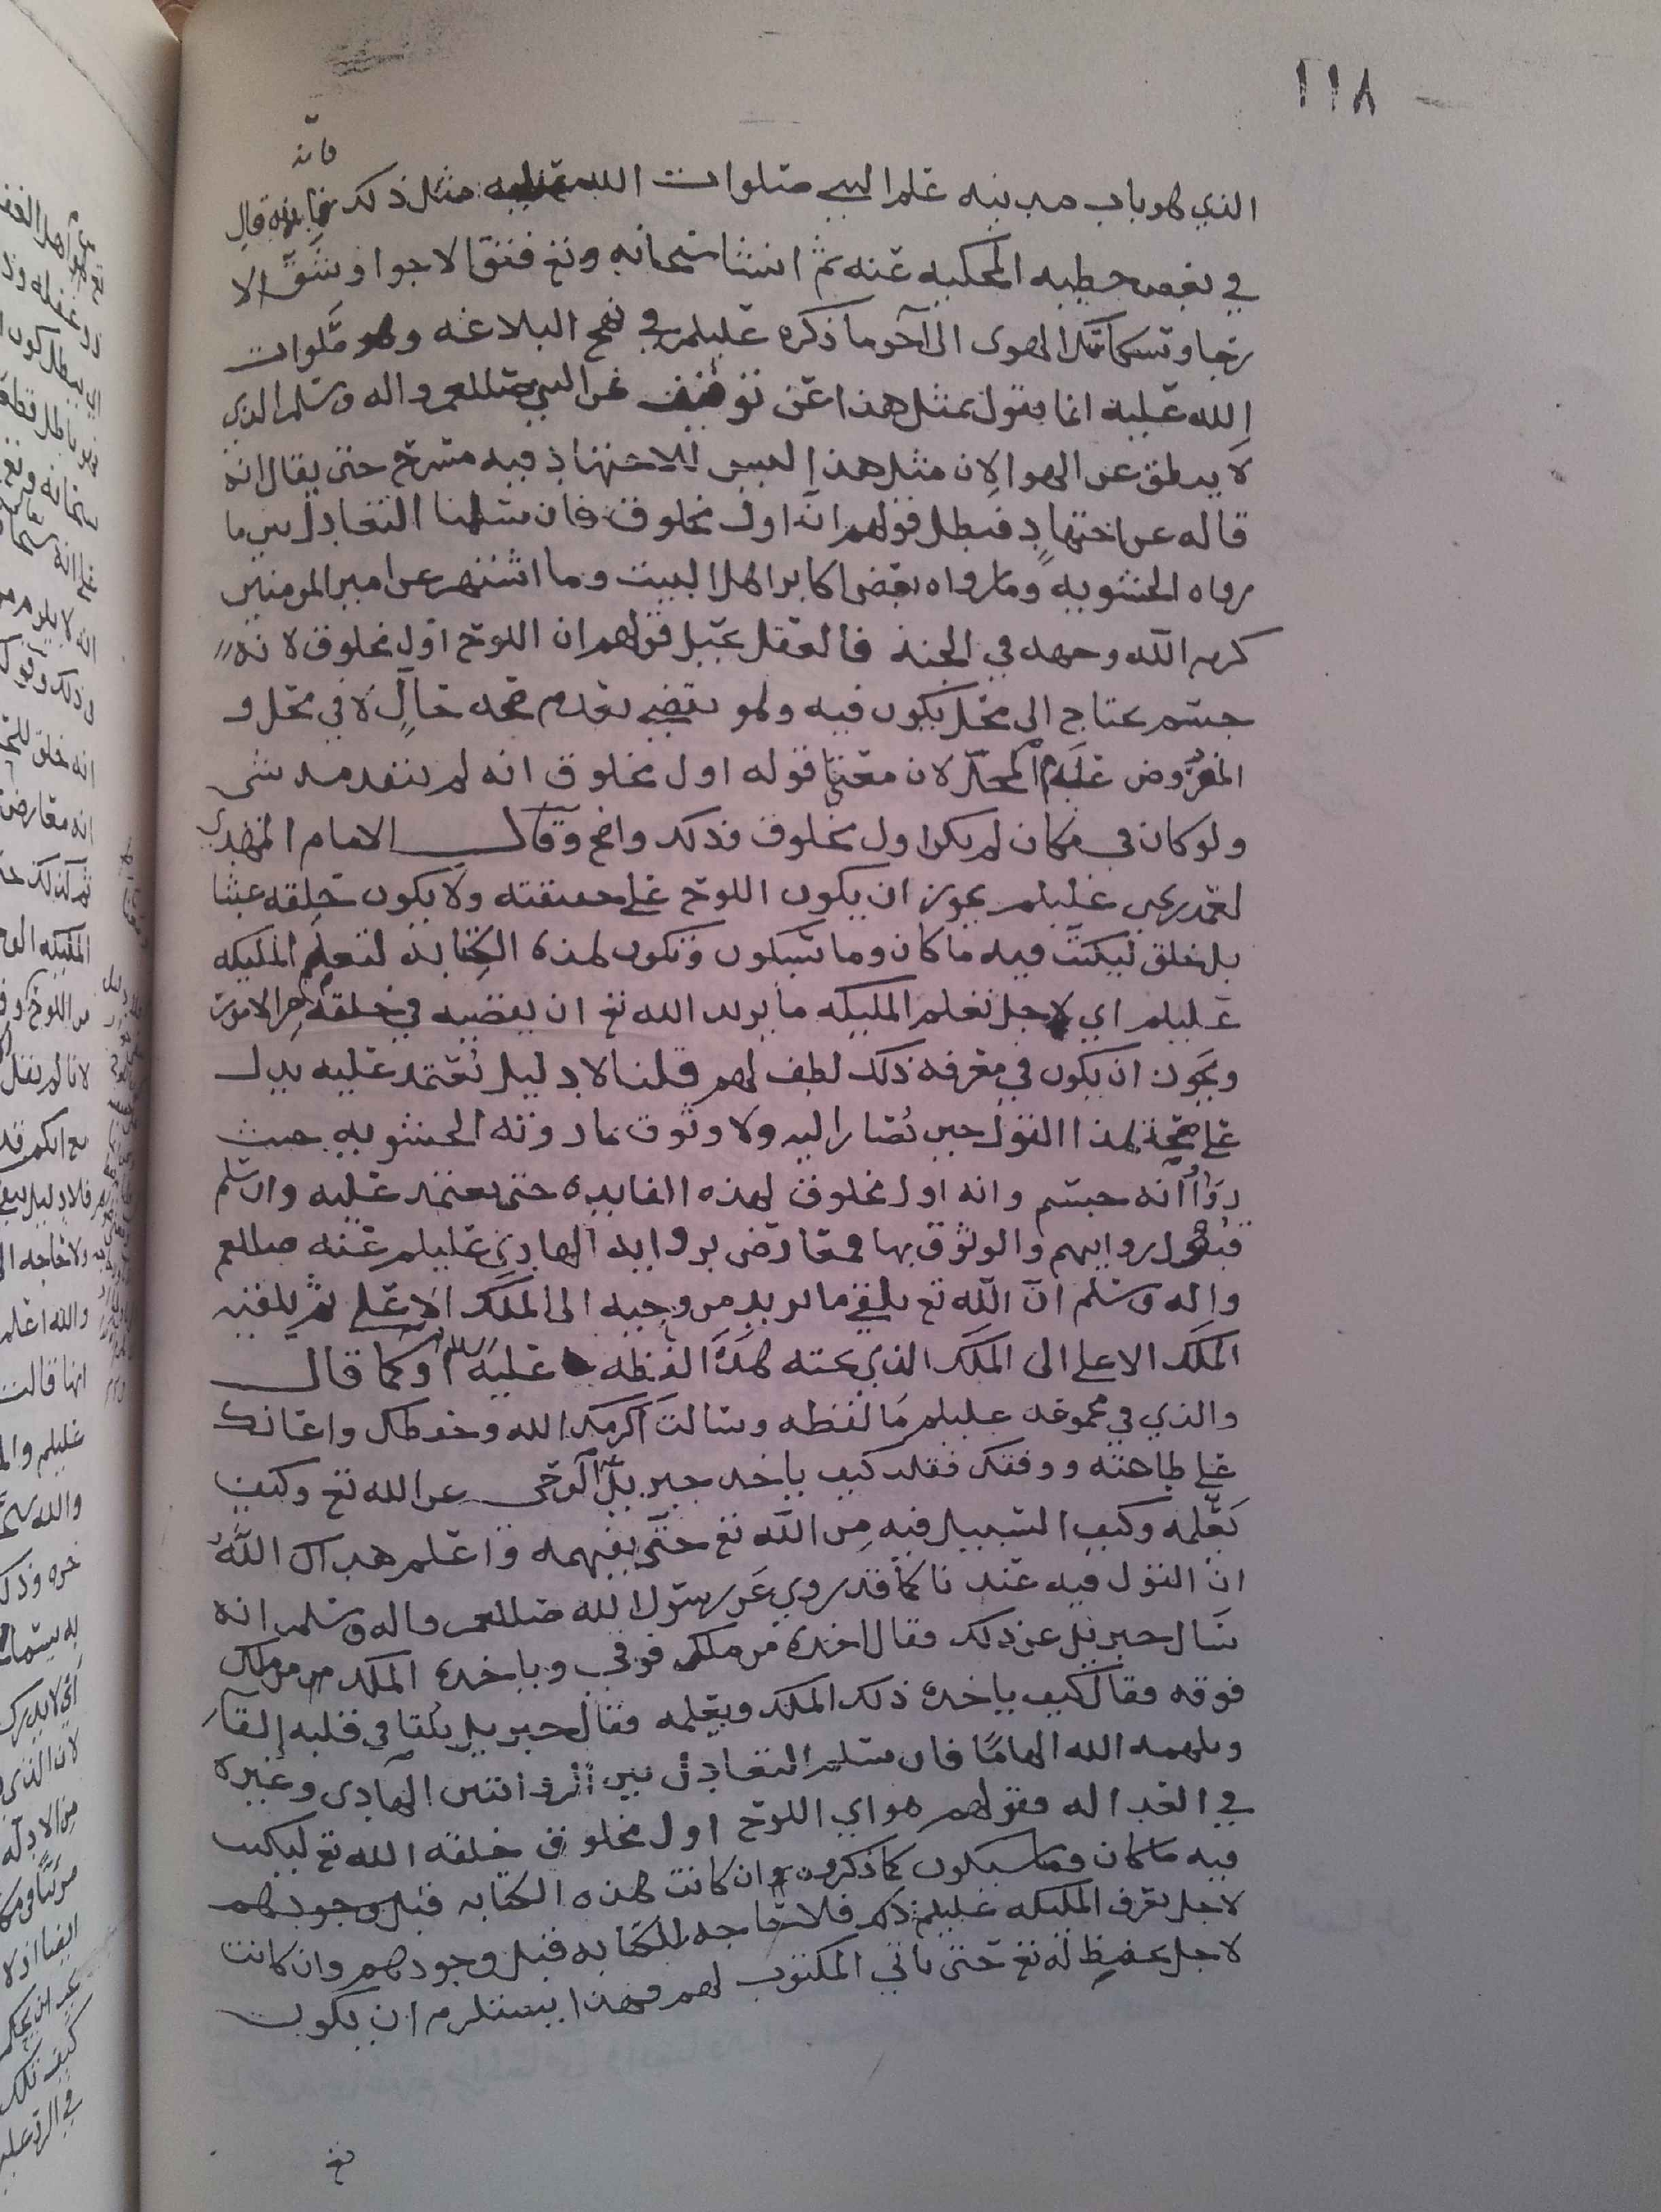 ١١٨
فانه
الذي هو باب مدينه علم النبي صلوات الله عليه مثل ذلك قال
في بعض خطبه المحكيه عنه ثم انشا سبحانه وتع فتق الاجوا وشق الا
رجا وسكائك الهوى الى آخر ما ذكره عليلم في نهج البلاغه وهو صلوات
الله عليه انما يقول بمثل هذا عن توقيف عن النبي صللعم واله وسلم الذي
لا ينطق عن الهوا لان مثل هذا ليس للاجتهاد فيه مسرح حتى يقال انه
قاله عن اجتهادٍ فبطل قولهم انه اول مخلوق فان سلمنا التعادل بين ما
رواه الحشويه وما رواه بعض اكابر اهل البيت وما اشتهر عن امير المومنين
كرم الله وجهه في الجنه فالعقل يحيل قولهم ان اللوح اول مخلوق لانه
جسم يحتاج الى محل يكون فيه وهو يقضي بعدم صحه حالٍ لا في محل و
المفروض عدم المحل لان معنى قوله اول مخلوق انه لم يتقدمه شي
ولو كان في مكان لم يكن اول مخلوق فذلك واضح وقال الامام المهدي
احمد بن يحيى عليلم يجوز ان يكون اللوح على حقيقته ولا يكون خلقه عبثا
بل خلق ليكتب فيه ما كان وما سيكون وتكون هذه الكتابه لتعلم المليكه
عليلم اي لاجل تعلم المليكه ما يريد الله تع ان يقضيه في خلقه من الامور
ويجوز ان يكون في معرفه ذلك لطف لهم قلنا لا دليل نعتمد عليه يدل
على صحة هذا القول حين نصار اليه ولا وثوق بما روته الحشويه حيث
رووا انه جسم وانه اول مخلوق لهذه الفايده حتى يعتمد عليه وان سلم
قبول روايتهم والوثوق بها فمعارض بروايه الهادي عليلم عنه صللعم
واله وسلم ان الله تع يلقي ما يريد من وحيه الى الملك الاعلى ثم يلقيه
الملك الاعلى الى الملك الذي تحته هذا لفظه عليه السلم او كما قال
والذي في مجموعه عليلم ما لفظه وسالت اكرمك الله وحفظك واعانك
على طاعته ووفقك فقلت كيف ياخذ جبريل الوحي عن الله تع وكيف
يعلمه وكيف السبيل فيه من الله تع حتى يفهمه واعلم هداك الله
ان القول فيه عندنا كما قد روي عن رسول الله صللعم واله وسلم انه
سال جبريل عن ذلك فقال اخذه من ملك فوقي وياخذه الملك من ملك
فوقه فقال كيف ياخذه ذلك الملك ويعلمه فقال جبريل يلقا في قلبه إلقآء
ويلهمه الله الهامًا فان سلم التعادل بين الروايتين الهادي وغيره
في العداله فقولهم هو اي اللوح اول مخلوق خلقه الله تع ليكتب
فيه ما كان وما سيكون كما ذكروه وان كانت هذه الكتابه قبل وجودهم
لاجل تعرف المليكه عليلم ذلك فلا حاجه للكتابه قبل وجودهم وان كانت
لاجل يحفظ له تع حتى ياتي المكتوب لهم فهذا يستلزم ان يكون
تع